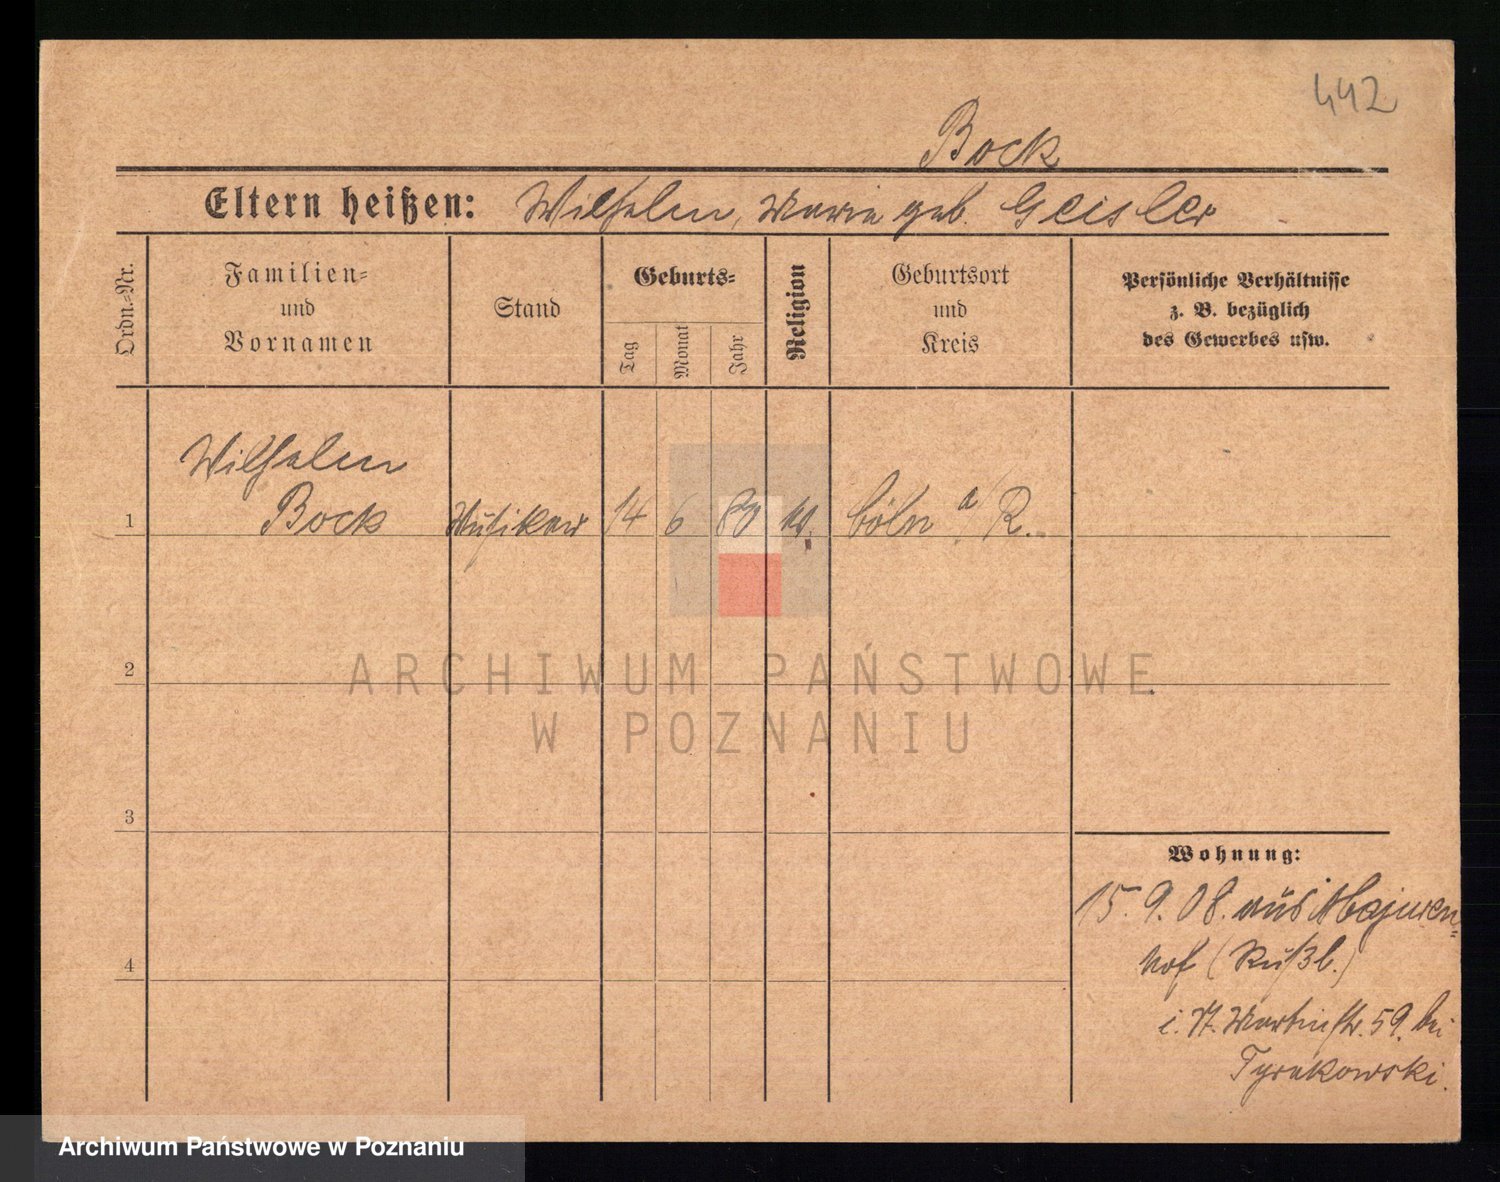 442
Bock
Eltern heißen: Wilhelm, Maria geb. Geisler
Ordn.-Nr.
Familien-
und
Vornamen
Stand
Geburts-
Tag
Monat
Jahr
Religion
Geburtsort
und
Kreis
Persönliche Verhältnisse
z. B. bezüglich
des Gewerbes usw.
Wilhelm
1 Bock Musiker 14 6 80 Cöln a/R.
ARCHIWUM PAŃSTWOWE
W POZNANIU
2
3
4
Wohnung:
15.9.08. aus
hof (Rußl.)
i. St. Martinstr. 59. bei
Tyrakowski.
Archiwum Państwowe w Poznaniu